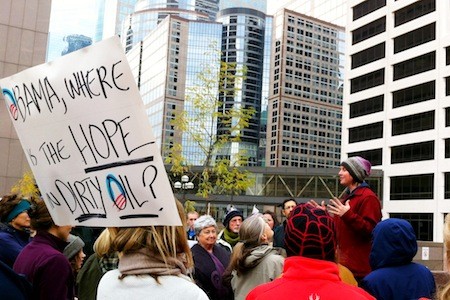 OBAMA, WHERE
IS THE HOPE
IN DIRTY OIL?